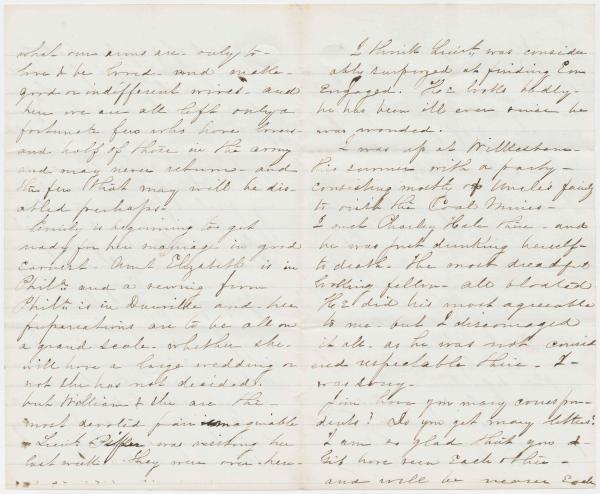 what our aims are - only to -
love & be loved - and make -
good or indifferent wives - and
here we are all left only a
fortunate few who have lovers -
and half of those in the army
and may never return - and
the few that may will be dis-
abled perhaps -
Emily is beginning to get
ready for her marriage in good
earnest - Aunt Elizabeth is in
Phila and a sewing from
Phila is in Danville and her
preparations are to be all on
a grand scale - whether she -
will have a large wedding or
not she has not decided.
but William & she are the -
most devoted pair imaginable
Lieut. was visiting her
last week - They were over here -
I think Lieut, was consider
ably surprized at finding Em
Engaged. He looks badly -
he has been ill ever since he
was wounded.
I was up at
this summer with a party -
consisting mostly of Uncle's family
to visit the Coal Mines -
I met Charley Hale there - and
he was just drinking himself -
to death. The most dreadful
looking fellow - all bloated
He did his most agreeable
to me - but I discouraged
it all - as he was not consid
ered respectable there - I -
was sorry -
Jim have you many correspon-
dents? Do you get many letters?
I am so glad that you &
have seen Each other -
and will be nearer Each